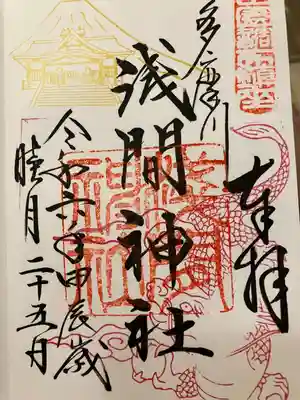 奉拝
多摩川
浅間神社
令和六年甲辰歳
睦月二十五月